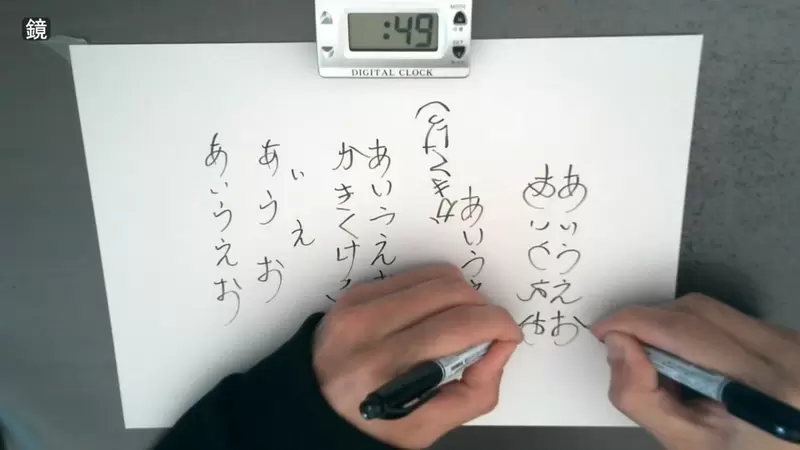 鏡
:49
MODE
SET
DIGITAL CLOCK
あいうえお
あいうえお
あいうえ
かきくけこ
あいうえお
かきくけこ
あいうえお
あいうえお